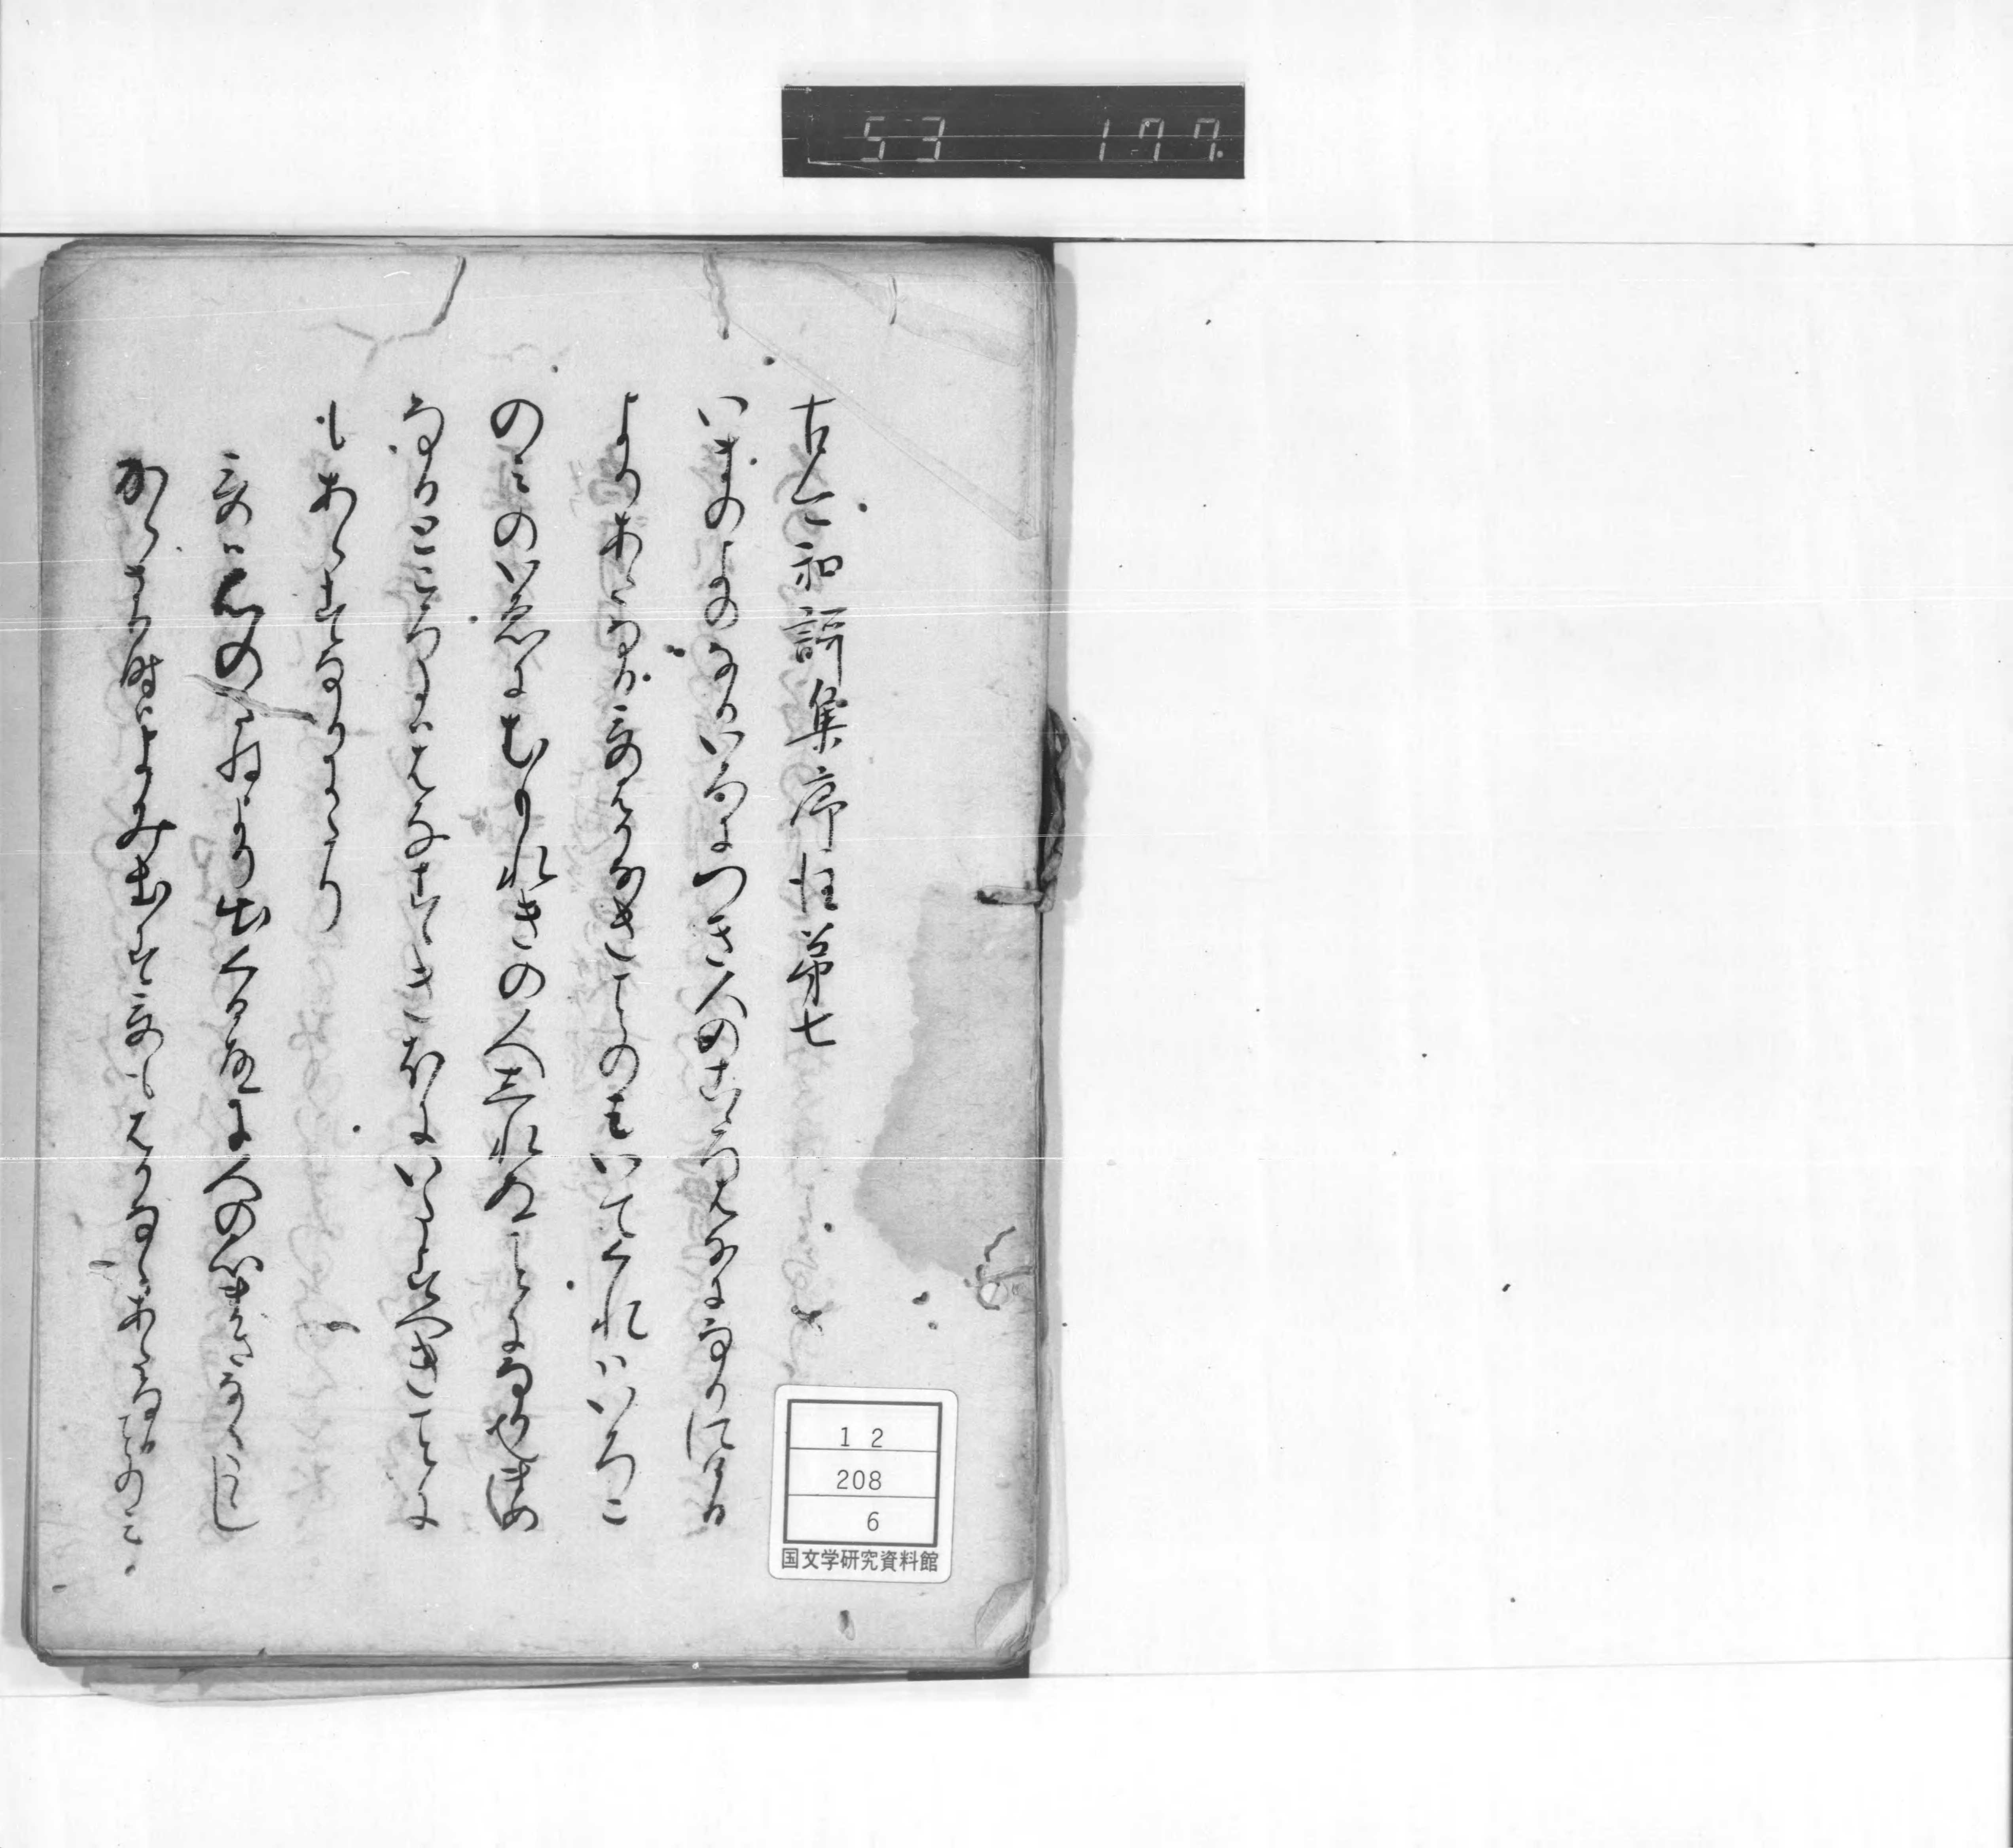 53 177.
古今和謌集序注第七
いまのよのなかいろにつき人のこゝろはなになりにける
よりあたなる哥はかなきことのみいてくれはいろこ
のみのいゑにむもれきの人しれぬことゝなりてまめ
なるところにははなすゝきほにいたすへきことに
もあらすなりにたり
哥は心のたねより出くる故に人の心まことなくし
かくなる時によみ出す哥もはかなくあたなるのみ
12
208
6
国文学研究資料館